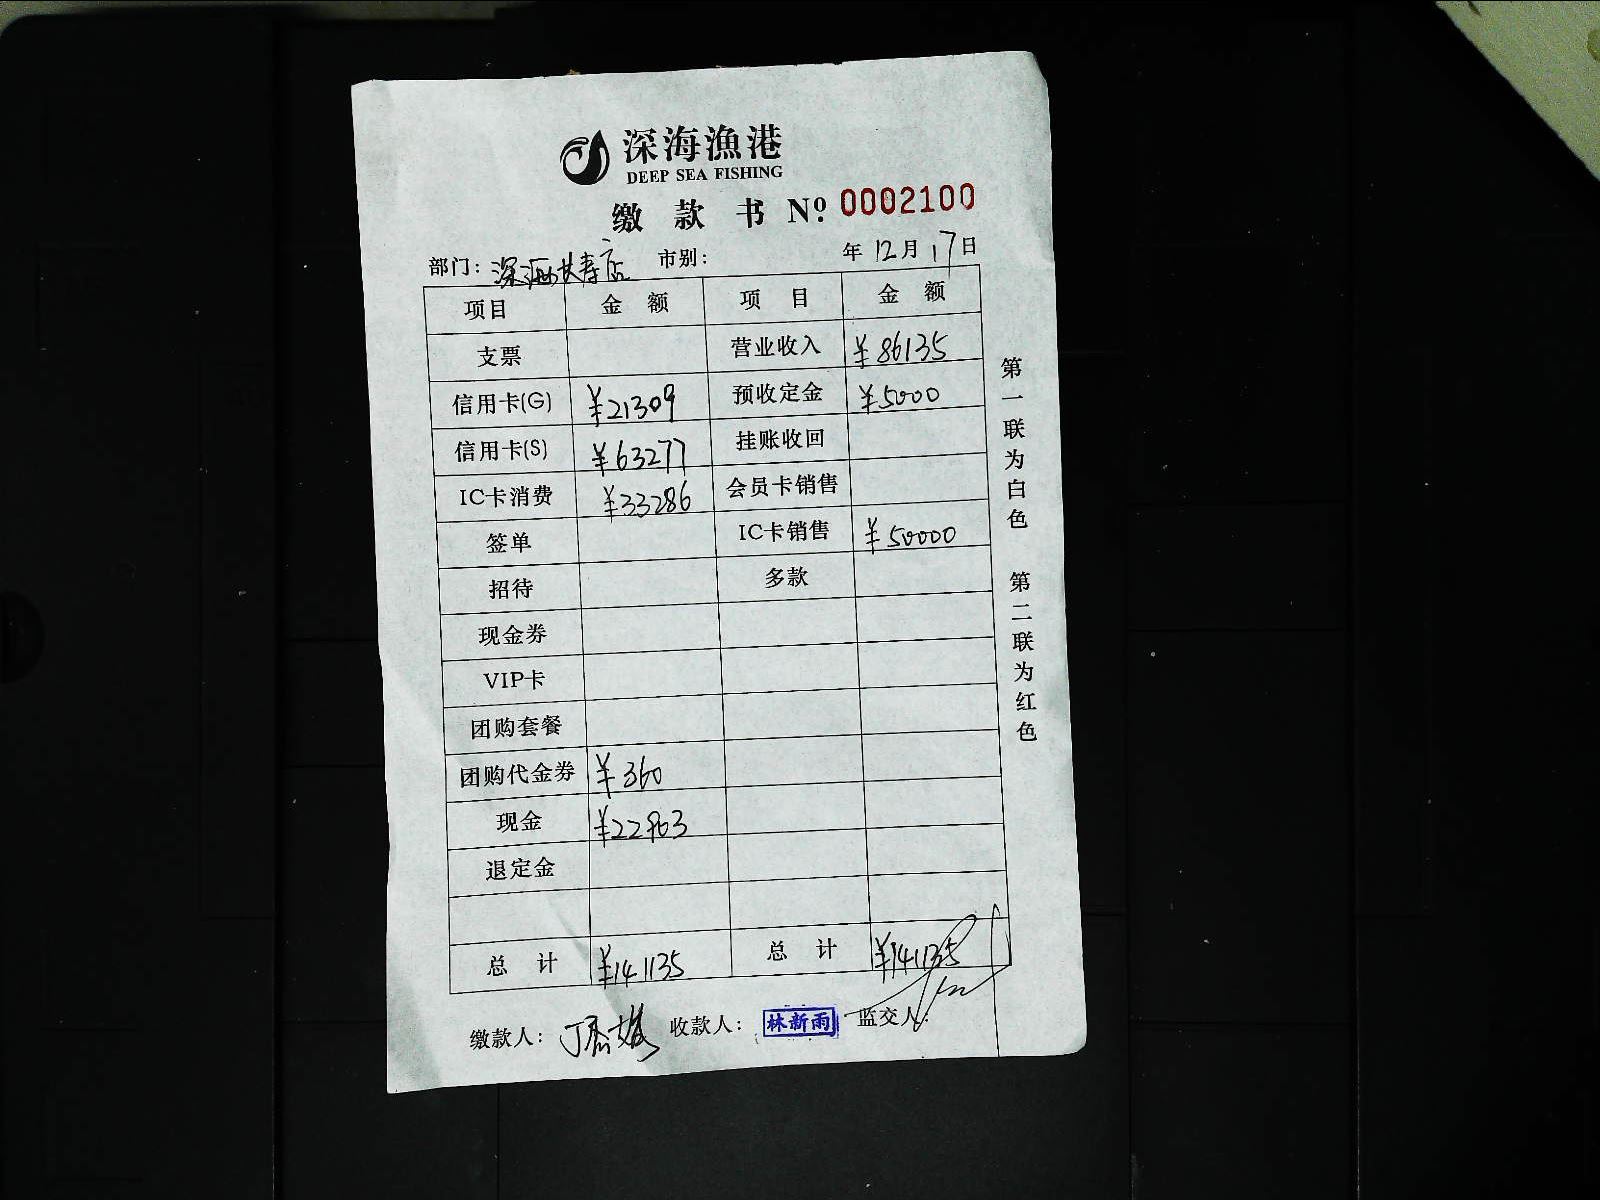 深海渔港
DEEP SEA FISHING
缴款书 Nº. 0002100
部门: 深海 寿店 市别: 年12月17日
项目 金额 项目 金额
支票 营业收入 ¥86135
信用卡(G) ¥21309 预收定金 ¥5000
信用卡(S) ¥63277 挂账收回
IC卡消费 ¥33286 会员卡销售
签单 IC卡销售 ¥50000
招待 多款
现金券
VIP卡
团购套餐
团购代金券 ¥360
现金 ¥22903
退定金
总计 ¥141135 总计 ¥141135
缴款人: 收款人: 林新雨 监交人:
第一联为白色 第二联为红色